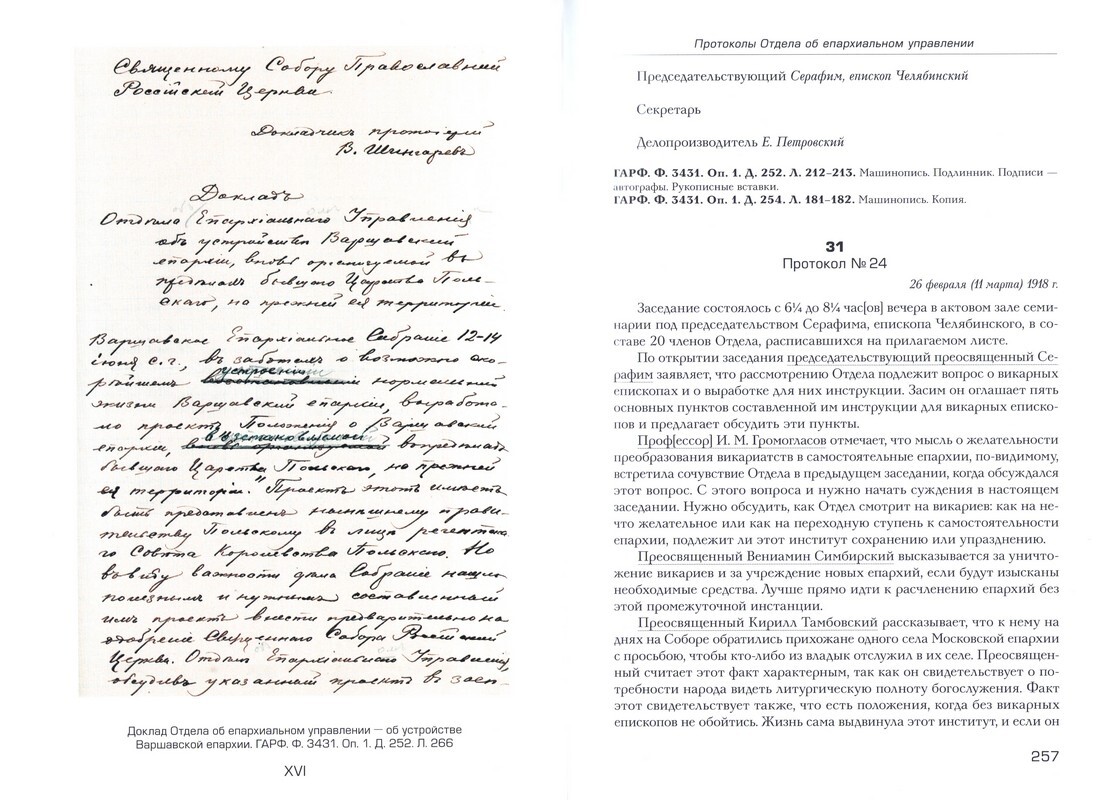 Священному Собору Православной
Россійской Церкви.
Докладчикъ протоіерей
В. Шингаревъ
Докладъ
Отдѣла Епархіальнаго Управленія
объ устройствѣ Варшавской
епархіи, вновь организуемой въ
предѣлахъ бывшаго Царства Поль-
скаго, на прежней ея территоріи.
Варшавское Епархіальное Собраніе 12-14
іюня с.г., въ заботахъ о возможно ско-
устроеніи
рѣйшемъ нормальной
жизни Варшавской епархіи, выработа-
ло проектъ Положенія о Варшавской
возстановляемой
епархіи, вновь организуемой въ предѣлахъ
бывшаго Царства Польскаго, на прежней
ея территоріи." Проектъ этотъ имѣетъ
быть представленъ нынѣшнему прави-
тельству Польскому въ лицѣ регентска-
го Совѣта Королевства Польскаго. Но
въ виду важности дѣла Собраніе нашло
полезнымъ и нужнымъ составленный
имъ проектъ внести предварительно на
одобреніе Священнаго Собора Россійской
Церкви. Отдѣлъ Епархіальнаго Управленія,
обсудивъ указанный проектъ въ засѣ-
Доклад Отдела об епархиальном управлении — об устройстве
Варшавской епархии. ГАРФ. Ф. 3431. Оп. 1. Д. 252. Л. 266
XVI
Протоколы Отдела об епархиальном управлении
Председательствующий Серафим, епископ Челябинский
Секретарь
Делопроизводитель Е. Петровский
ГАРФ. Ф. 3431. Оп. 1. Д. 252. Л. 212–213. Машинопись. Подлинник. Подписи —
автографы. Рукописные вставки.
ГАРФ. Ф. 3431. Оп. 1. Д. 254. Л. 181–182. Машинопись. Копия.
31
Протокол № 24
26 февраля (11 марта) 1918 г.
Заседание состоялось с 6¼ до 8¼ час[ов] вечера в актовом зале семи-
нарии под председательством Серафима, епископа Челябинского, в со-
ставе 20 членов Отдела, расписавшихся на прилагаемом листе.
По открытии заседания председательствующий преосвященный Се-
рафим заявляет, что рассмотрению Отдела подлежит вопрос о викарных
епископах и о выработке для них инструкции. Засим он оглашает пять
основных пунктов составленной им инструкции для викарных еписко-
пов и предлагает обсудить эти пункты.
Проф[ессор] И. М. Громогласов отмечает, что мысль о желательности
преобразования викариатств в самостоятельные епархии, по-видимому,
встретила сочувствие Отдела в предыдущем заседании, когда обсуждался
этот вопрос. С этого вопроса и нужно начать суждения в настоящем
заседании. Нужно обсудить, как Отдел смотрит на викариев: как на не-
что желательное или как на переходную ступень к самостоятельности
епархии, подлежит ли этот институт сохранению или упразднению.
Преосвященный Вениамин Симбирский высказывается за уничто-
жение викариев и за учреждение новых епархий, если будут изысканы
необходимые средства. Лучше прямо идти к расчленению епархий без
этой промежуточной инстанции.
Преосвященный Кирилл Тамбовский рассказывает, что к нему на
днях на Соборе обратились прихожане одного села Московской епархии
с просьбою, чтобы кто-либо из владык отслужил в их селе. Преосвящен-
ный считает этот факт характерным, так как он свидетельствует о по-
требности народа видеть литургическую полноту богослужения. Факт
этот свидетельствует также, что есть положения, когда без викарных
епископов не обойтись. Жизнь сама выдвинула этот институт, и если он
257